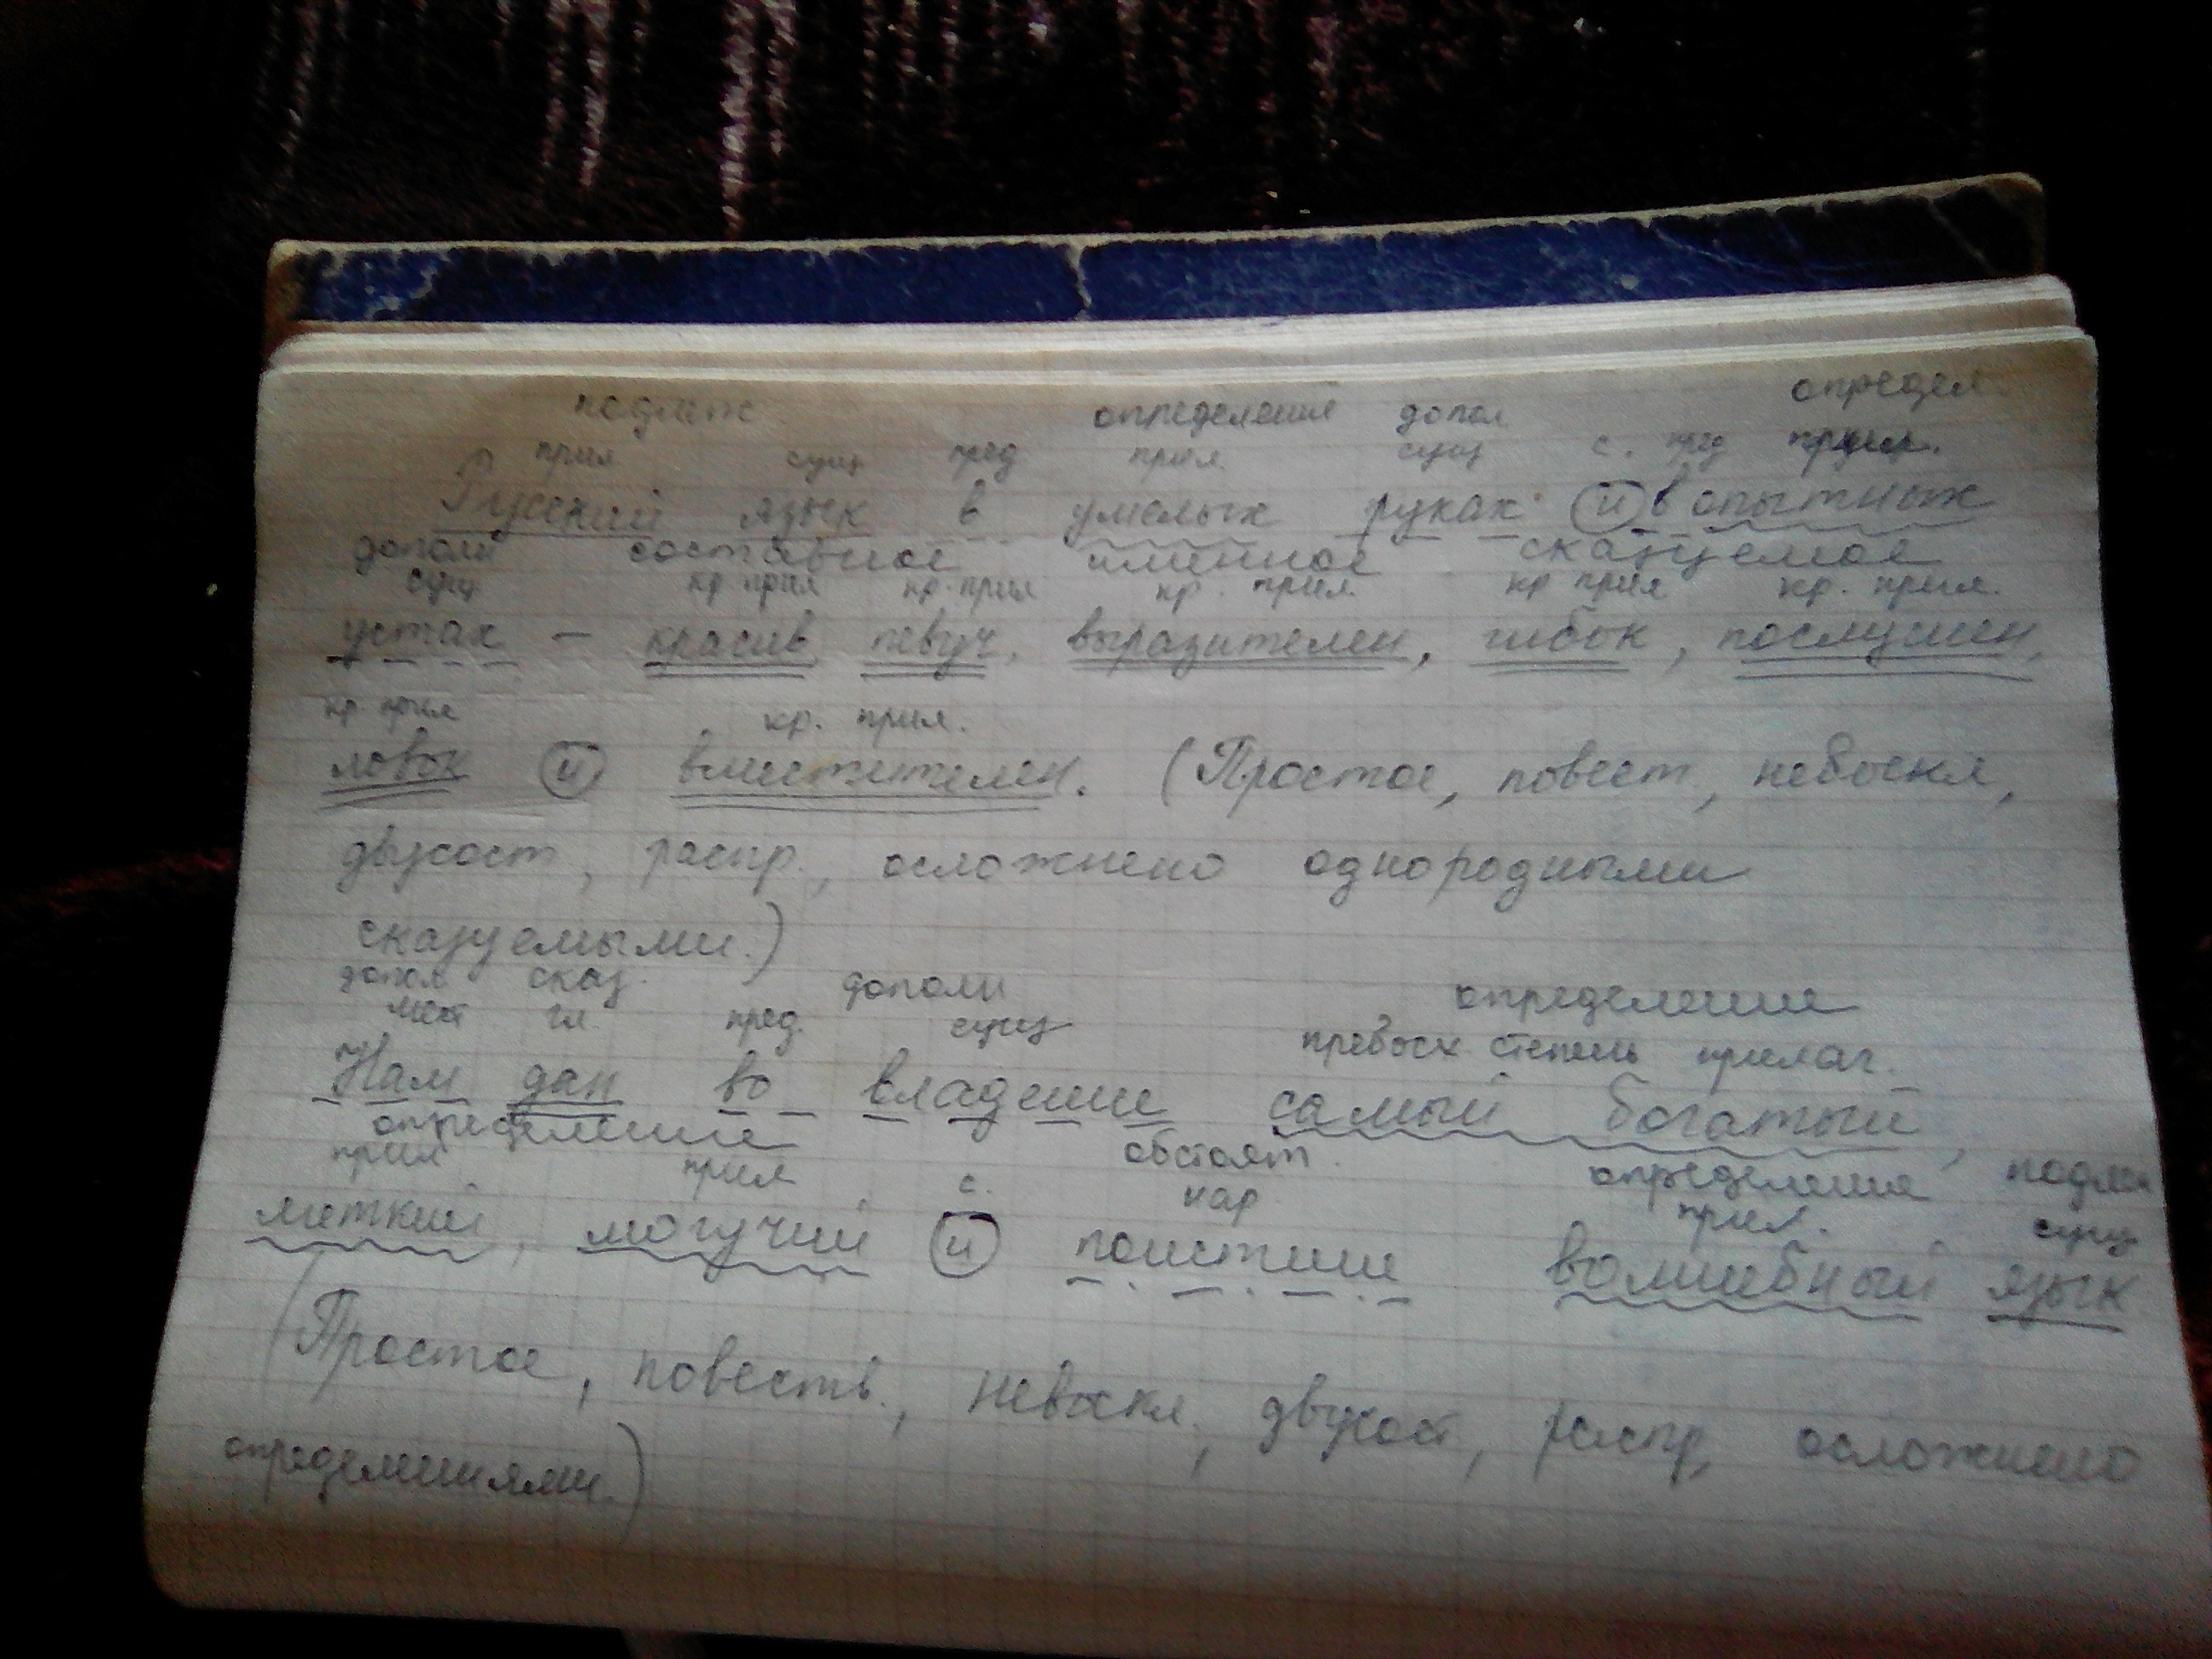 подлеж определение допол определ.
прил сущ пред прил сущ с. пред прил.
Русский язык в умелых руках и в опытных
дополн составное именное сказуемое
сущ кр прил кр. прил кр. прил. кр прил кр. прил.
устах – красив, певуч, выразителен, гибок, послушен,
кр прил кр. прил.
ловок и вместителен. (Простое, повест., невоскл,
двусост, распр., осложнено однородными
сказуемыми.)
допол сказ. дополн определение
мест гл. пред. сущ превосх степень прилаг.
Нам дан во владение самый богатый,
определение обстоят. определение подлеж
прил прил с. нар прил. сущ
меткий, могучий и поистине волшебный язык
(Простое, повеств., невоскл., двусост, распр, осложнено
определениями.)